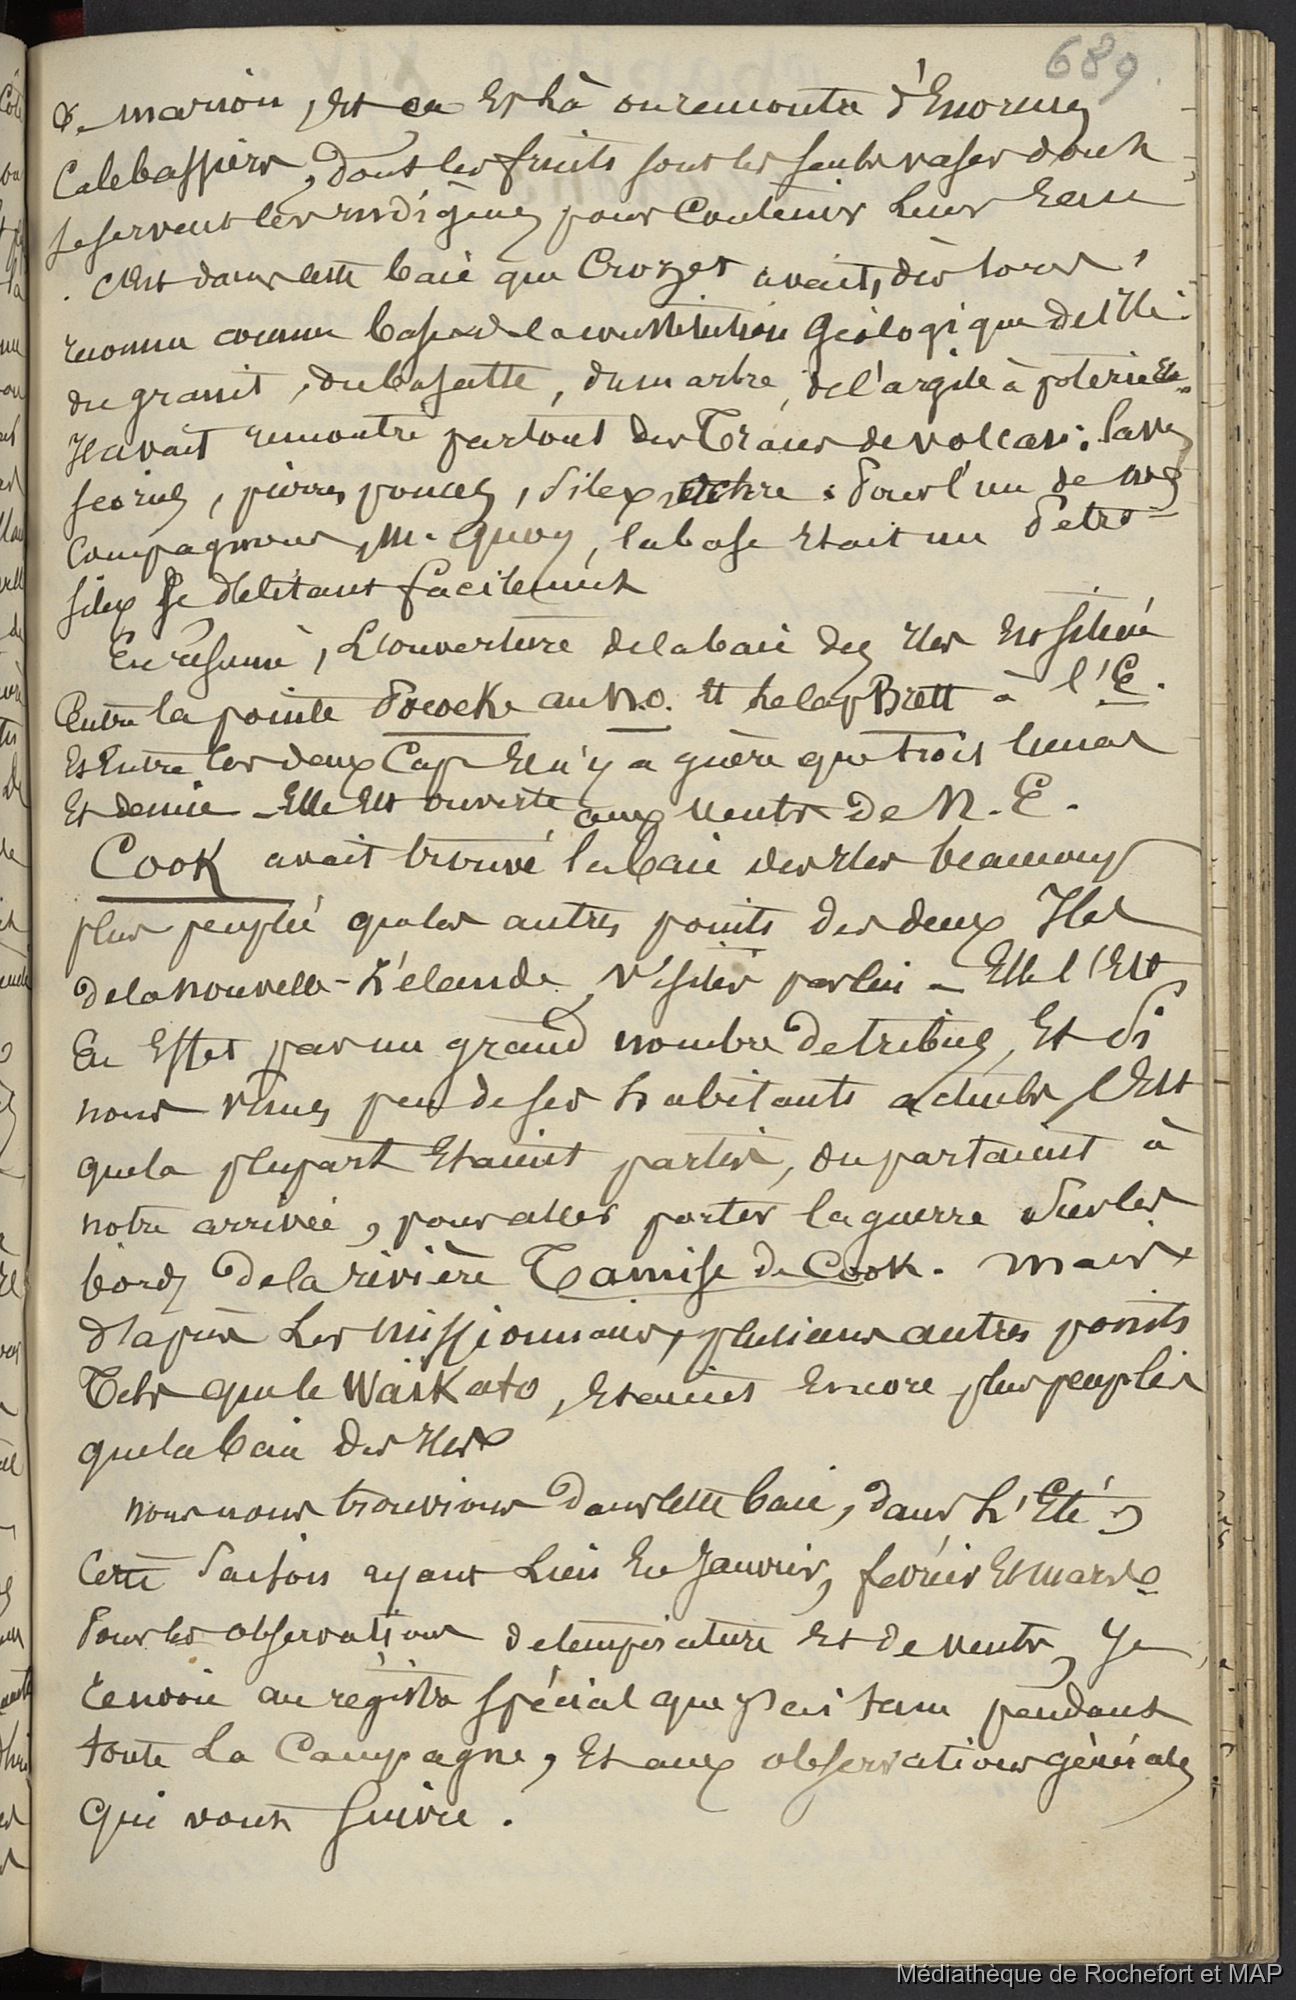 689
de marion, et ça et là on rencontre d'Enormes
Calebassiers, dont les fruits sont les seuls vases dont
se servent les indigènes pour Contenir Leur Eau
. C'est dans cette baie que Crozet avait, dès lors,
reconnu comme base de la constitution Géologique de l'Ile
du granit, du basalte, du marbre, de l'argile à poterie Etc
Il avait rencontré partout des Traces de volcan: laves
scories, pierres ponces, Silex, ochre. Pour l'un de nos
Compagnons, M. Quoy, la base était un Petro-
silex se délitant facilement
En résumé, L'ouverture de la baie des Iles Est située
Entre la pointe Pocock au N.O. Et le Cap Brett à l'E.
Et Entre les deux Cap Il n'y a guère que trois lieues
Et demie - Elle Est ouverte aux Vents de N.E.
Cook avait trouvé la baie des Iles beaucoup
plus peuplée que les autres points des deux Iles
de la nouvelle-Zélande, visités par lui - Elle l'Est,
En Effet par un grand nombre de tribus, Et Si
nous vîmes peu de ses habitants actuels, C'Est
que la plupart Etaient partis, ou partaient à
notre arrivée, pour aller porter la guerre Sur les
bords de la rivière Tamise de Cook. Mais
d'après Les Missionnaires, plusieurs autres points
Tels que le Waikato, Etaient Encore plus peuplés
que la baie des Iles
Nous nous trouvions dans cette baie, dans L'Eté,
Cette Saison ayant Lieu En Janvier, février Et mars
Pour les observations de température Et de vents, Je
renvoie au régistre spécial que j'ai tenu pendant
toute La Campagne, Et aux observations générales
Qui vont Suivre.
Médiathèque de Rochefort et MAP